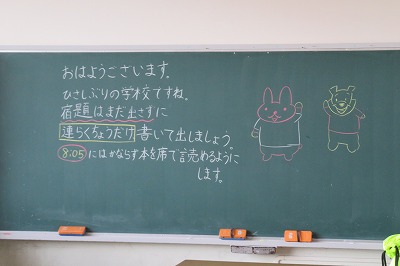 おはようございます。
ひさしぶりの学校ですね。
宿題はまだ出さずに
連らくちょうだけ書いて出しましょう。
8:05にはかならず本を席で読めるように
します。